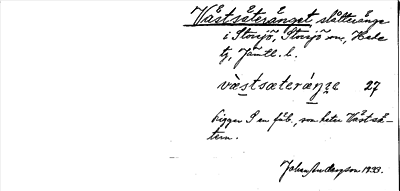 Västsäteränget slåtteränge
i Storsjö, Storsjö sn, Hede
tg, Jämtl. l.
væstsæteráŋe 27
Ligger S en fäb., som heter Västsä-
tern.
Johan Andersson 1933.